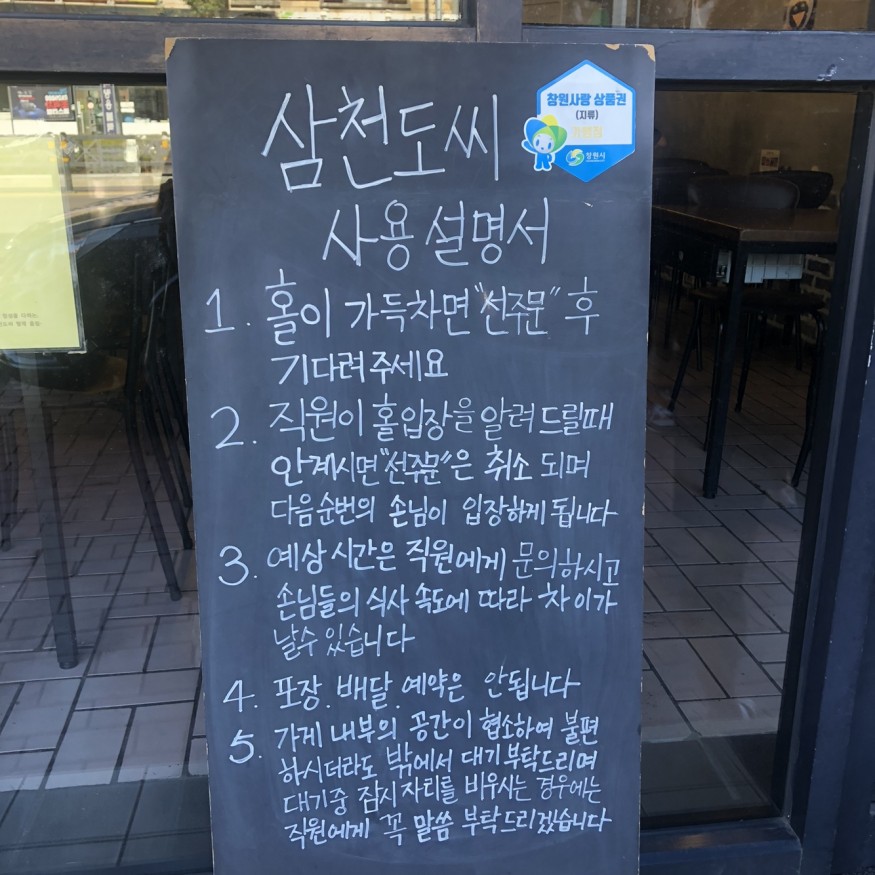 삼천도씨
창원사랑 상품권
(지류)
가맹점
창원시
사용설명서
1. 홀이 가득차면 "선주문" 후
기다려주세요
2. 직원이 홀입장을 알려드릴때
안계시면 "선주문"은 취소 되며
다음순번의 손님이 입장하게 됩니다
3. 예상시간은 직원에게 문의하시고
손님들의 식사 속도에 따라 차이가
날수 있습니다
4. 포장. 배달. 예약은 안됩니다
5. 가게 내부의 공간이 협소하여 불편
하시더라도 밖에서 대기부탁드리며
대기중 잠시 자리를 비우시는 경우에는
직원에게 꼭 말씀 부탁드리겠습니다